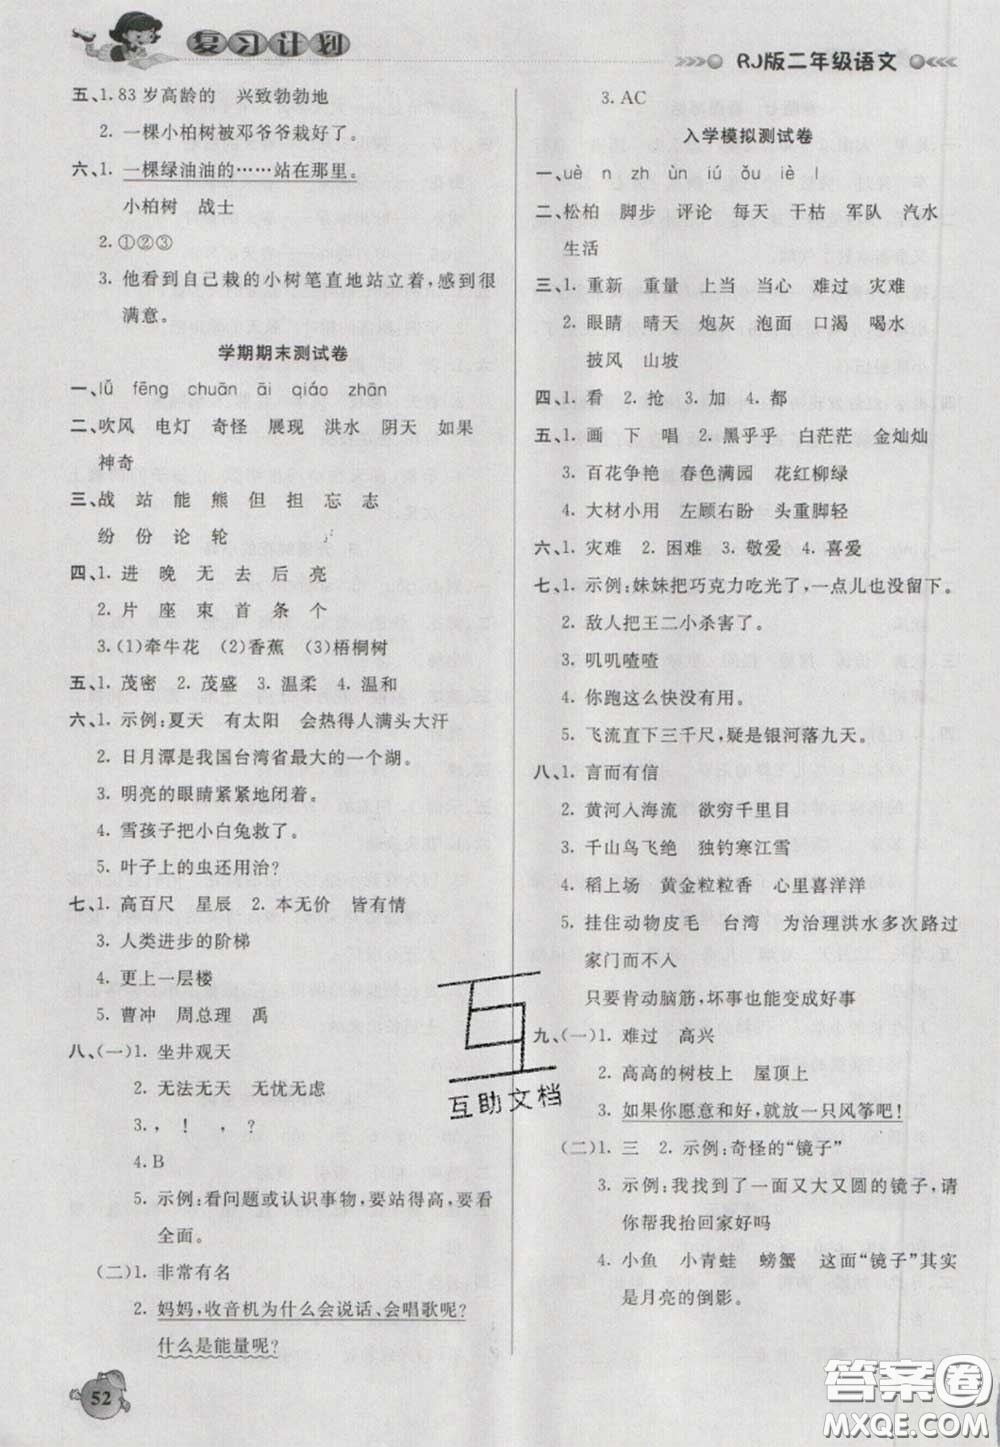 复习计划
RJ版二年级语文
五、1. 83 岁高龄的 兴致勃勃地
2. 一棵小柏树被邓爷爷栽好了。
六、1. 一棵绿油油的……站在那里。
小柏树 战士
2. ①②③
3. 他看到自己栽的小树笔直地站立着,感到很
满意。
学期期末测试卷
一、lǔ fēng chuān āi qiáo zhān
二、吹风 电灯 奇怪 展现 洪水 阴天 如果
神奇
三、战 站 能 熊 但 担 忘 志
纷 份 论 轮
四、1. 进 晚 无 去 后 亮
2. 片 座 束 首 条 个
3. (1)牵牛花 (2)香蕉 (3)梧桐树
五、1. 茂密 2. 茂盛 3. 温柔 4. 温和
六、1. 示例:夏天 有太阳 会热得人满头大汗
2. 日月潭是我国台湾省最大的一个湖。
3. 明亮的眼睛紧紧地闭着。
4. 雪孩子把小白兔救了。
5. 叶子上的虫还用治?
七、1. 高百尺 星辰 2. 本无价 皆有情
3. 人类进步的阶梯
4. 更上一层楼
5. 曹冲 周总理 禹
八、(一)1. 坐井观天
2. 无法无天 无忧无虑
3. , ! , ?
4. B
5. 示例:看问题或认识事物,要站得高,要看
全面。
(二)1. 非常有名
2. 妈妈,收音机为什么会说话、会唱歌呢?
什么是能量呢?
52
3. AC
入学模拟测试卷
一、uè n zh ùn iú ǒu iè l
二、松柏 脚步 评论 每天 干枯 军队 汽水
生活
三、1. 重新 重量 上当 当心 难过 灾难
2. 眼睛 晴天 炮灰 泡面 口渴 喝水
披风 山坡
四、1. 看 2. 抢 3. 加 4. 都
五、1. 画 下 唱 2. 黑乎乎 白茫茫 金灿灿
3. 百花争艳 春色满园 花红柳绿
4. 大材小用 左顾右盼 头重脚轻
六、1. 灾难 2. 困难 3. 敬爱 4. 喜爱
七、1. 示例:妹妹把巧克力吃光了,一点儿也没留下。
2. 敌人把王二小杀害了。
3. 叽叽喳喳
4. 你跑这么快没有用。
5. 飞流直下三千尺,疑是银河落九天。
八、1. 言而有信
2. 黄河入海流 欲穷千里目
3. 千山鸟飞绝 独钓寒江雪
4. 稻上场 黄金粒粒香 心里喜洋洋
5. 挂住动物皮毛 台湾 为治理洪水多次路过
家门而不入
只要肯动脑筋,坏事也能变成好事
九、(一)1. 难过 高兴
2. 高高的树枝上 屋顶上
3. 如果你愿意和好,就放一只风筝吧!
(二)1. 三 2. 示例:奇怪的“镜子”
3. 示例:我找到了一面又大又圆的镜子,请
你帮我抬回家好吗
4. 小鱼 小青蛙 螃蟹 这面“镜子”其实
是月亮的倒影。
互助文档
答案圈
MXQE.COM